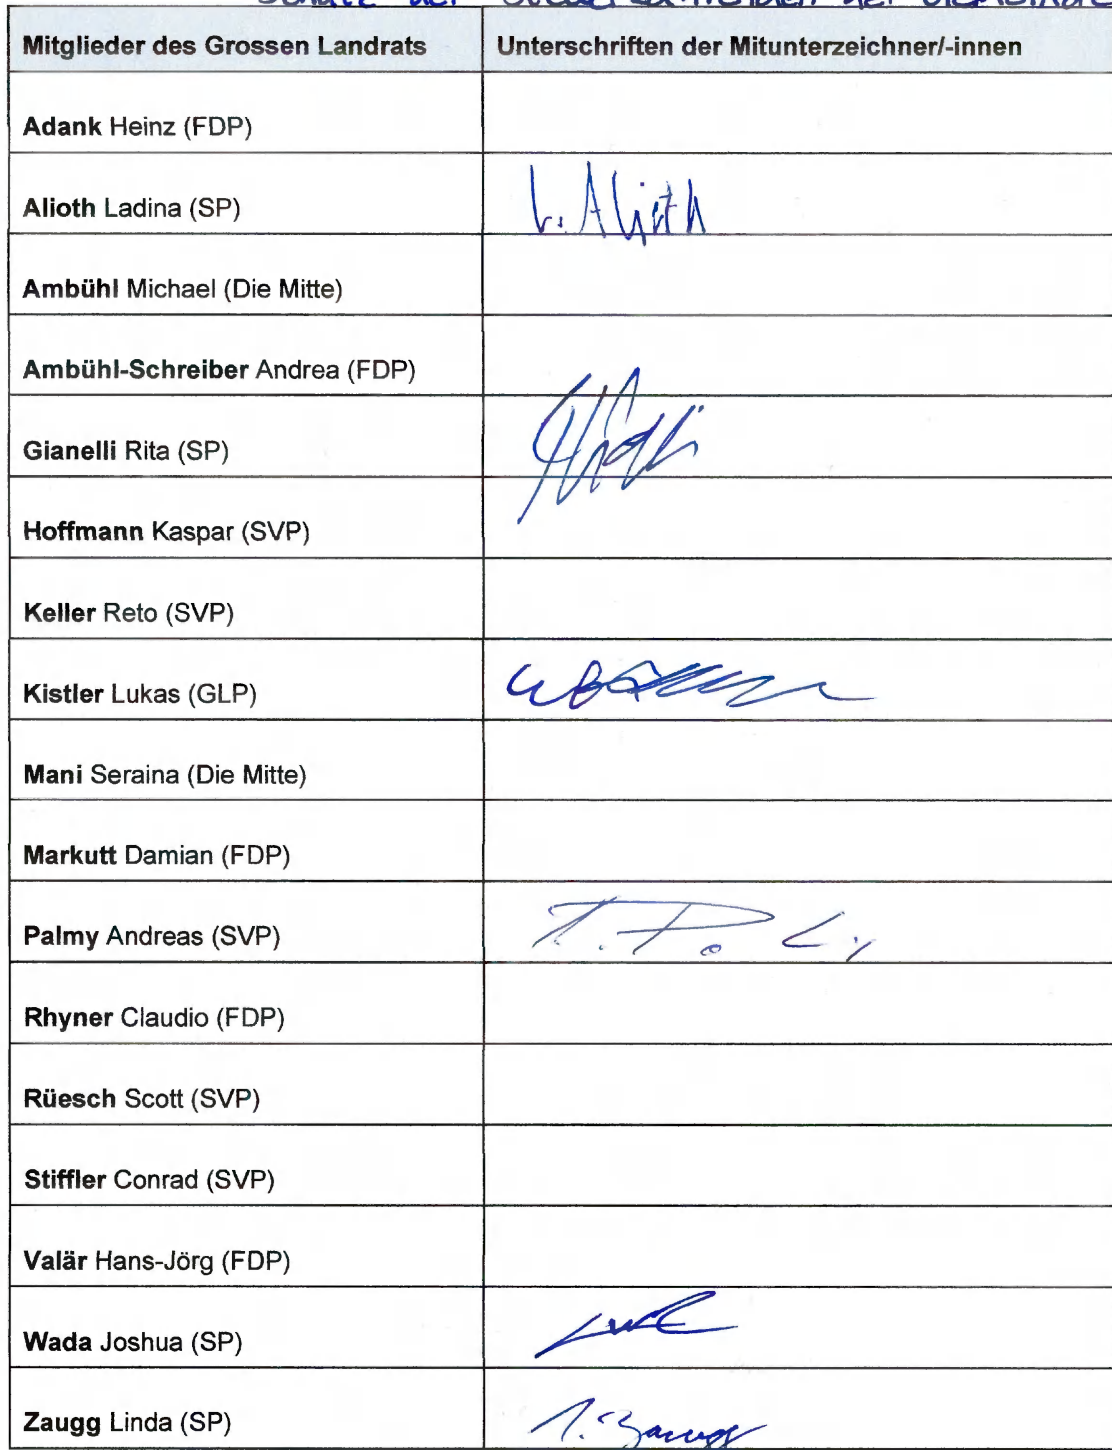 Mitglieder des Grossen Landrats Unterschriften der Mitunterzeichner/-innen
Adank Heinz (FDP)
Alioth Ladina (SP) L. Alioth
Ambühl Michael (Die Mitte)
Ambühl-Schreiber Andrea (FDP)
Gianelli Rita (SP)
Hoffmann Kaspar (SVP)
Keller Reto (SVP)
Kistler Lukas (GLP)
Mani Seraina (Die Mitte)
Markutt Damian (FDP)
Palmy Andreas (SVP)
Rhyner Claudio (FDP)
Rüesch Scott (SVP)
Stiffler Conrad (SVP)
Valär Hans-Jörg (FDP)
Wada Joshua (SP)
Zaugg Linda (SP) Zaugg